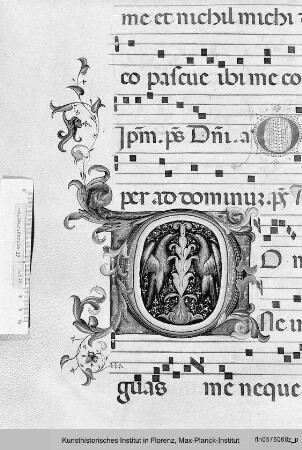 me et nichil michi
co pascue ibi me co
Ipm. ps Dm. a
per ad dominuz. ps
O
D
ne m
guas me neque
Kunsthistorisches Institut in Florenz, Max-Planck-Institut
fln0578068z_p